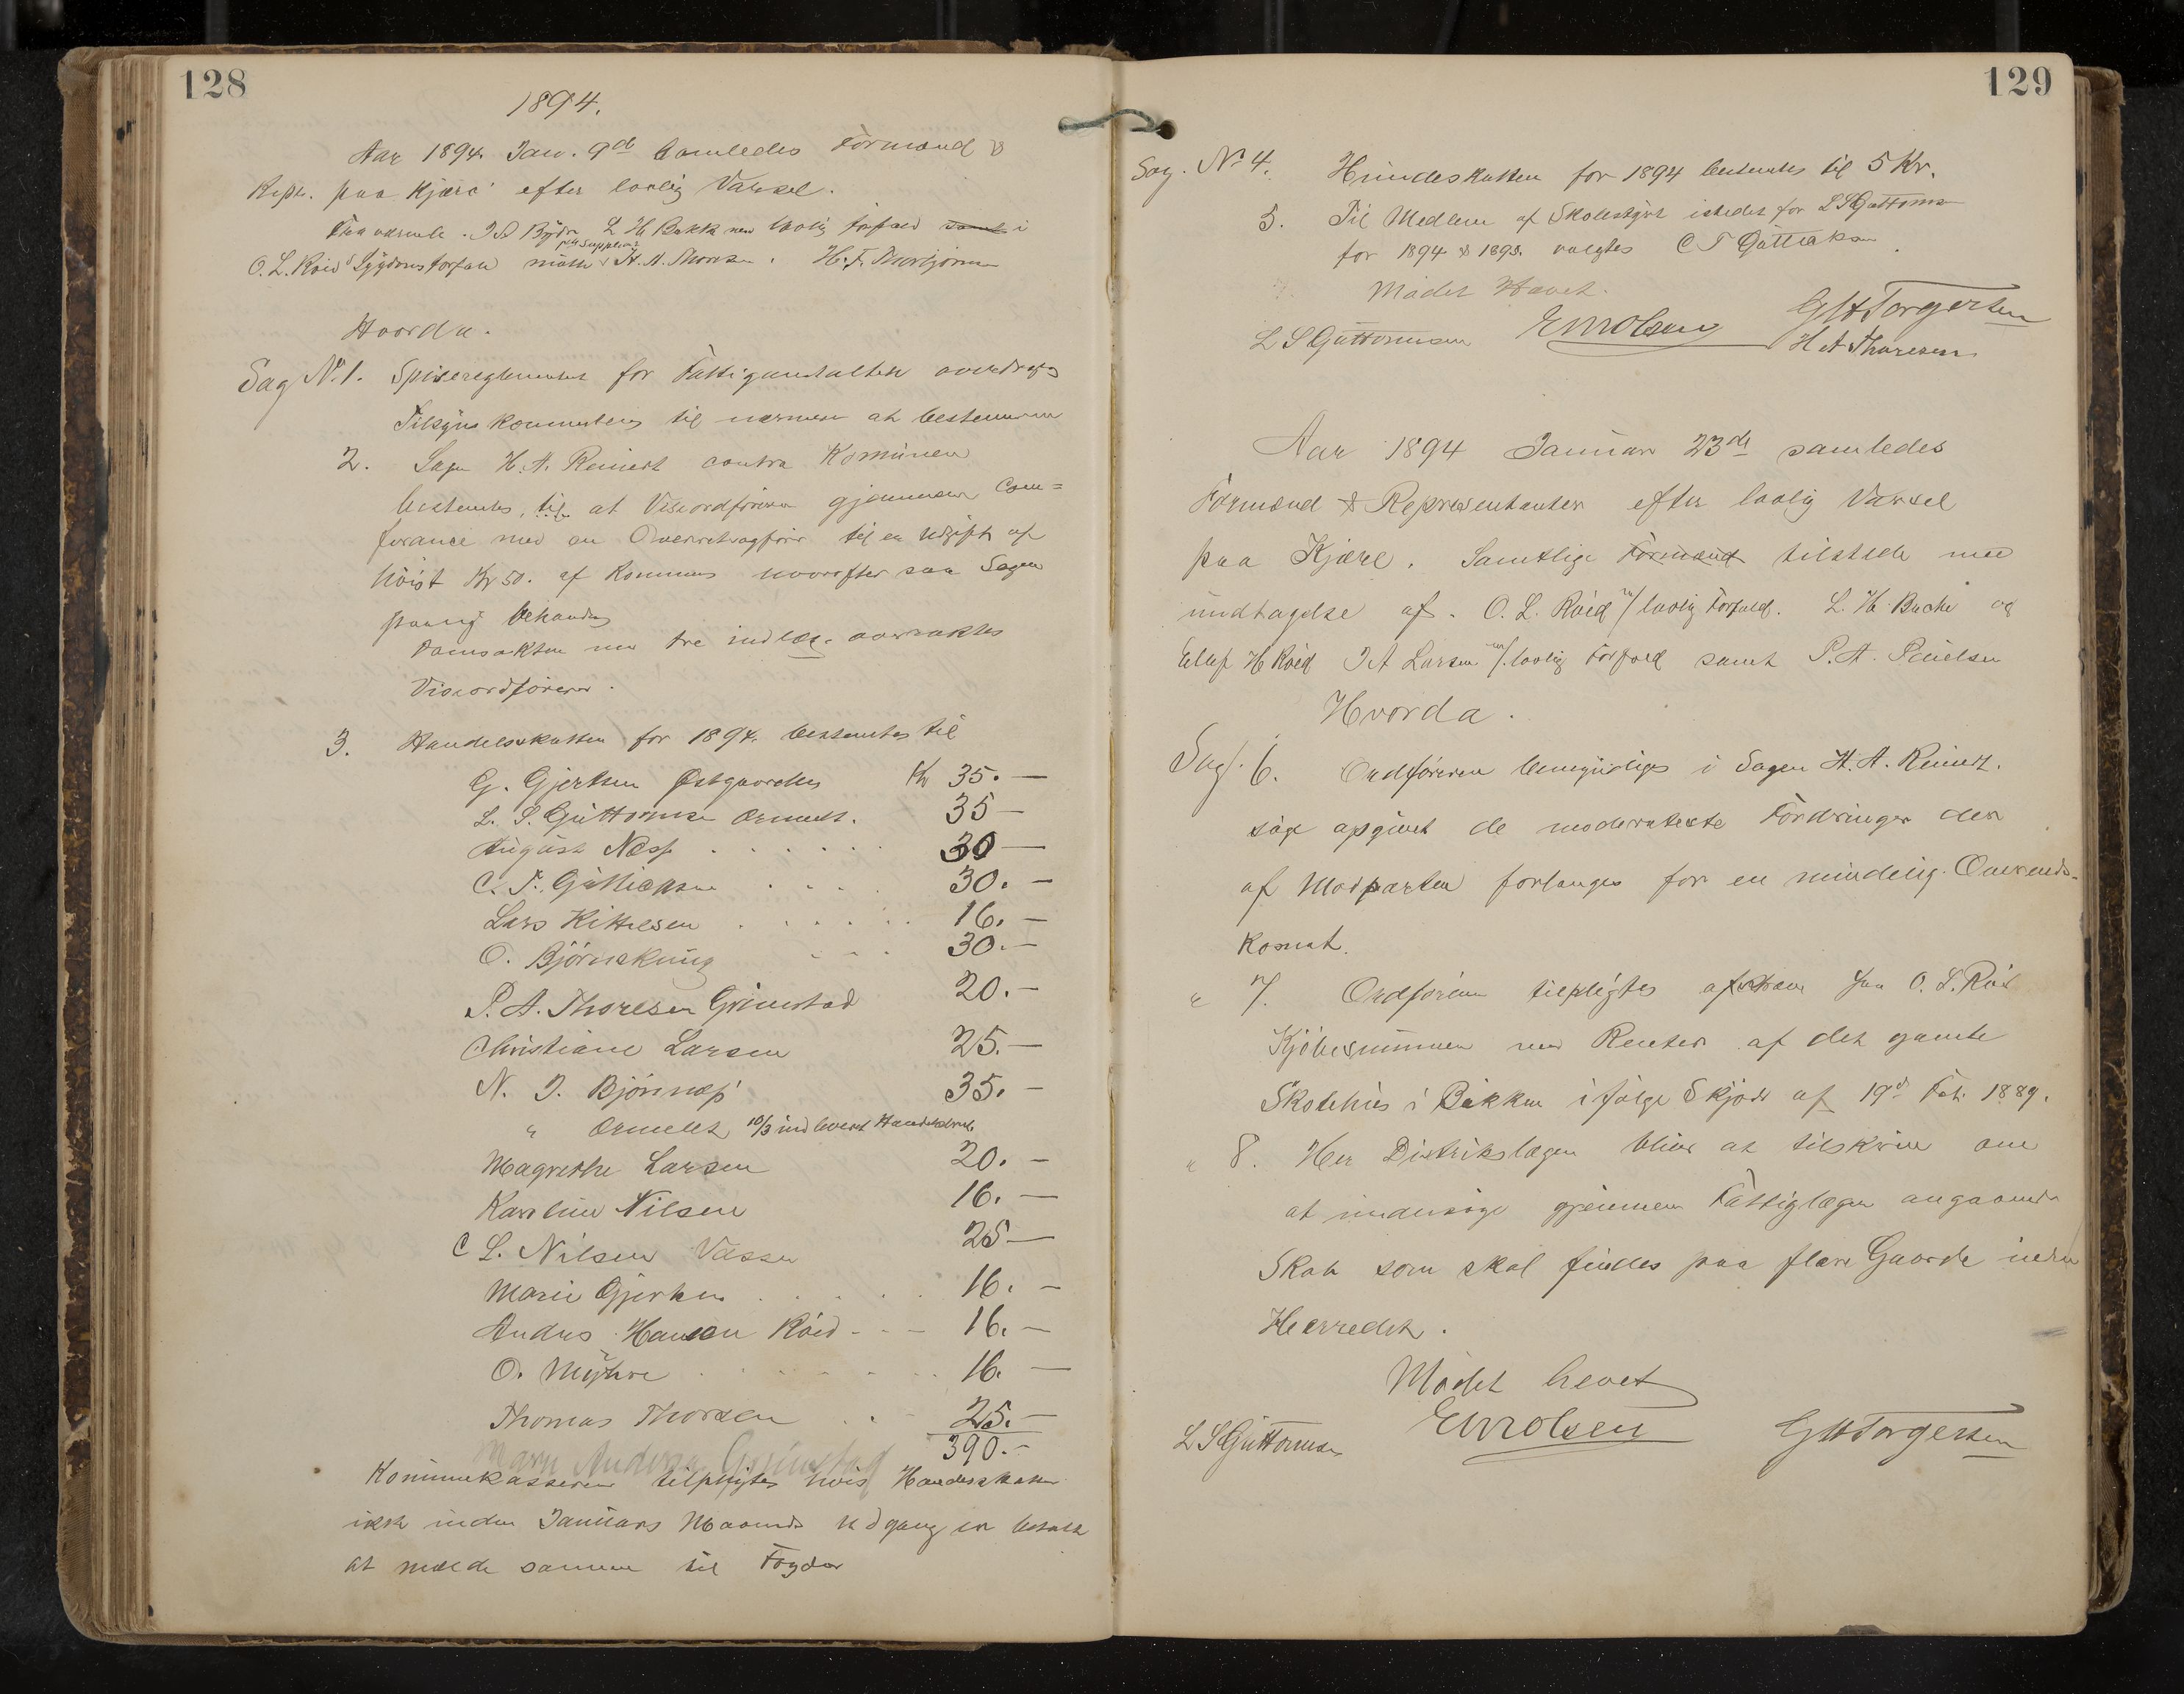 128
1894.
Aar 1894. Jan. 9de samledes Formænd &
Repr. paa Kjære efter lovlig Varsel.
Fraværende. L H Bakk med lovlig forfald samt i
O. L. Röed Sygdomsforfald mötte som Supplient H. A. Thoresen. H. F. Thorbjörnsen
Hvorda.
Sag No. 1. Spisereglementet for Fattiganstalten overdrages
Tilsynskommiteen til nærmere at bestemme
2. Sagen H. A. Reinert contra Komunen
bestemtes, til at Viseordföreren gjennem Con=
ferance med en Overretsagförer til en Udgift af
höist Kr 50. af Kommunens hvorefter saa Sagen
paany behandles
Domsakten med tre indlæg. overraktes
Viseordförer.
3. Handelsskatten for 1894. bestemtes til
G. Gjertsen Östgaardens Kr 35. —
L. S. Guttormsen Ormelt. 35 —
August Næss . . . . . . 30 —
C. T. Guttieksen . . . . 30. —
Lars Kittelsen . . . . . . 16. —
O. Björnskung . . . 30. —
P. A. Thoresen Grimstad 20. —
Christiane Larsen 25. —
N. J. Björnnæs 35. —
" Ormelet 10/3 indlevert Handelsbrev
Magrethe Larsen 20. —
Karoline Nilsen 16. —
C L. Nilsen Vassen 25 —
Marie Gjertsen . . . . . 16. —
Andres Hansen Röed - - - 16. —
O. Myhre . . . . . . 16. —
Thomas Thorsen . . - 25. —
390. -
Marn Andersen Grimstad
Kommunekasseren tilpligtes hvis Handelsskatten
ikke inden Januars Maaneds Udgang er betalt
at melde samme til Fogden
129
Sag. No 4. Hundeskatten for 1894 bestemtes til 5 Kr.
5. Til Medlem af Skolestyret istedet for L S Guttormsen
for 1894 & 1895. valgtes C T Guttieksen.
Mödet Hævet.
L S Guttormsen EMOlsen GHTorgersen
H A Thoresen
Aar 1894 Januar 23de samledes
Formænd & Representanter efter lovlig Varsel
paa Kjære. Samtlige Formænd tilstede med
undtagelse af. O. L. Röed m/ lovlig Forfald. L. H. Backe og
Ellef H Röed J A Larsen m/. lovlig Forfald samt P. A. Paulsen
Hvorda.
Sag. 6. Ordföreren bemyndiges i Sagen H. A. Reinert.
söge opgivet de moderateste Fordringer der
af Modparten forlanges for en mindelig Overends-
komst.
" 7. Ordföreren tilpligtes afkræve Fru O. L. Röed
Kjöbesummen med Renter af det gamle
Skolehus i Bakken ifölge Skjöde af 19de Feb. 1889.
" 8. Her Distrikslægen bliver at tilskrive om
at undersöge gjennem Fattiglægen angaaende
Skab som skal findes paa flere Gaarde inden
Herredet.
Mödet hevet
L S Guttormsen EMOlsen GHTorgersen